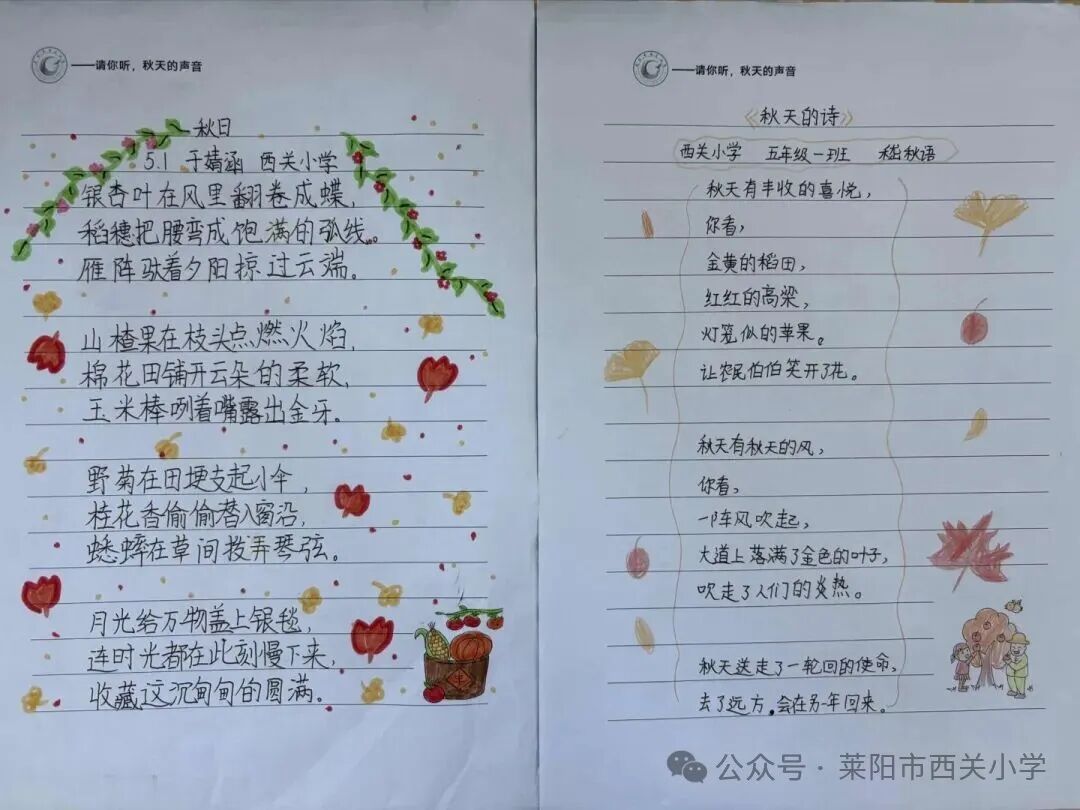 ——请你听，秋天的声音
秋日
5.1 于婧涵 西关小学
银杏叶在风里翻卷成蝶，
稻穗把腰弯成饱满的弧线。
雁阵驮着夕阳掠过云端。
山楂果在枝头点燃火焰，
棉花田铺开云朵的柔软，
玉米棒咧着嘴露出金牙。
野菊在田埂支起小伞，
桂花香偷偷潜入窗沿，
蟋蟀在草间拨弄琴弦。
月光给万物盖上银毯，
连时光都在此刻慢下来，
收藏这沉甸甸的圆满。
丰
——请你听，秋天的声音
《秋天的诗》
西关小学 五年级一班 嵇秋语
秋天有丰收的喜悦，
你看，
金黄的稻田，
红红的高粱，
灯笼似的苹果。
让农民伯伯笑开了花。
秋天有秋天的风，
你看，
一阵风吹起，
大道上落满了金色的叶子，
吹走了人们的炎热。
秋天送走了一轮回的使命，
去了远方，会在另一年回来。
公众号·莱阳市西关小学